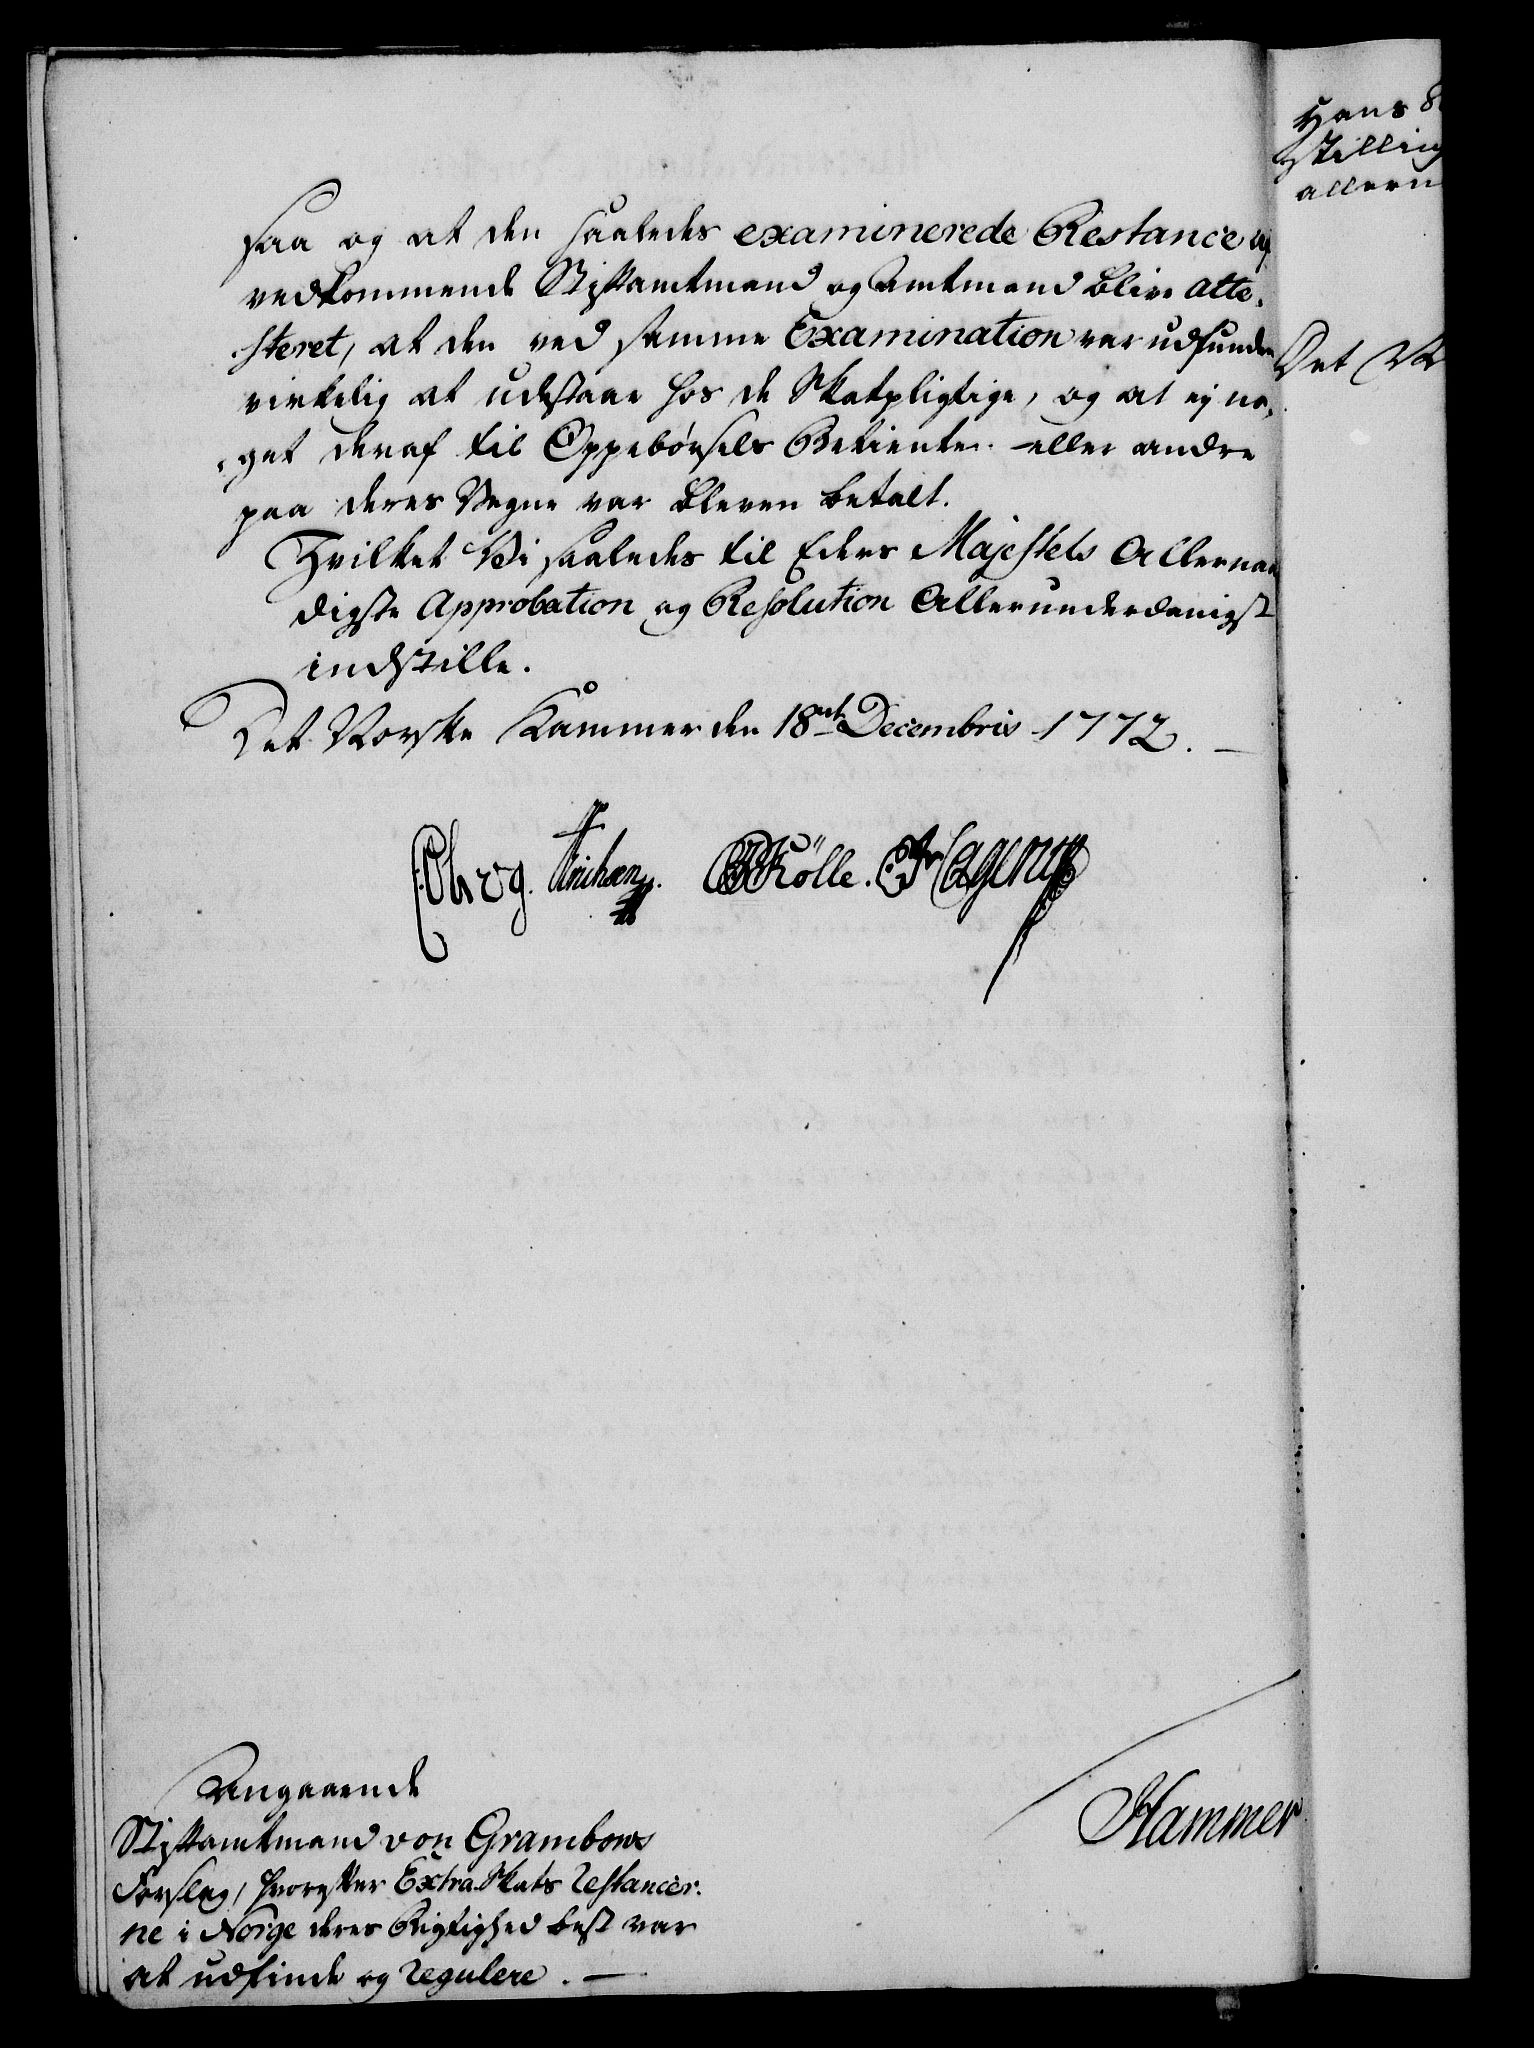 saa og at den saaledes examinerede Restance af
vedkommende Stiftamtmand og Amtmand blive atte-
steret, at den ved samme Examination var udfunden
virkelig at udestaae hos de Skatpligtige, og at ej no-
get deraf til Oppebørsels Betiente eller andre
paa deres Vegne var bleven betalt.
Hvilket Vi saaledes til Eders Majestets Allernaa
digste Approbation og Resolution Allerunderdanigst
indstille.
Det Norske Kammer den 18de Decembris 1772.
Kölle. Hagerup
Hammer
Angaaende
Stiftamtmand von Grambows
Forslag, hvorefter Extra Skats Restancer-
ne i Norge deres Rigtighed best var
at udfinde og regulere.
Hans
stilling
allern
Det